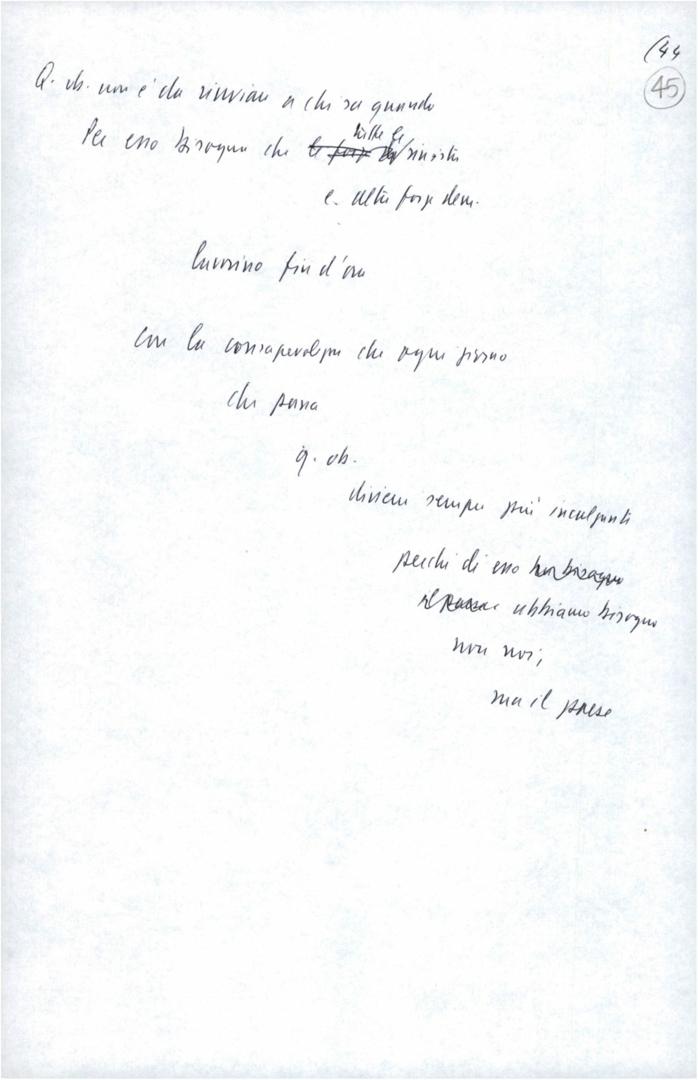 (44
45
Q. ob. non è da rinviare a chi sa quando
Per esso bisogna che le forze di tutte le sinistre
e altre forze dem.
lavorino fin d'ora
con la consapevolezza che ogni giorno
che passa
q. ob.
diviene sempre più incalzante
perché di esso ha bisogno
il paese abbiamo bisogno
non noi,
ma il paese